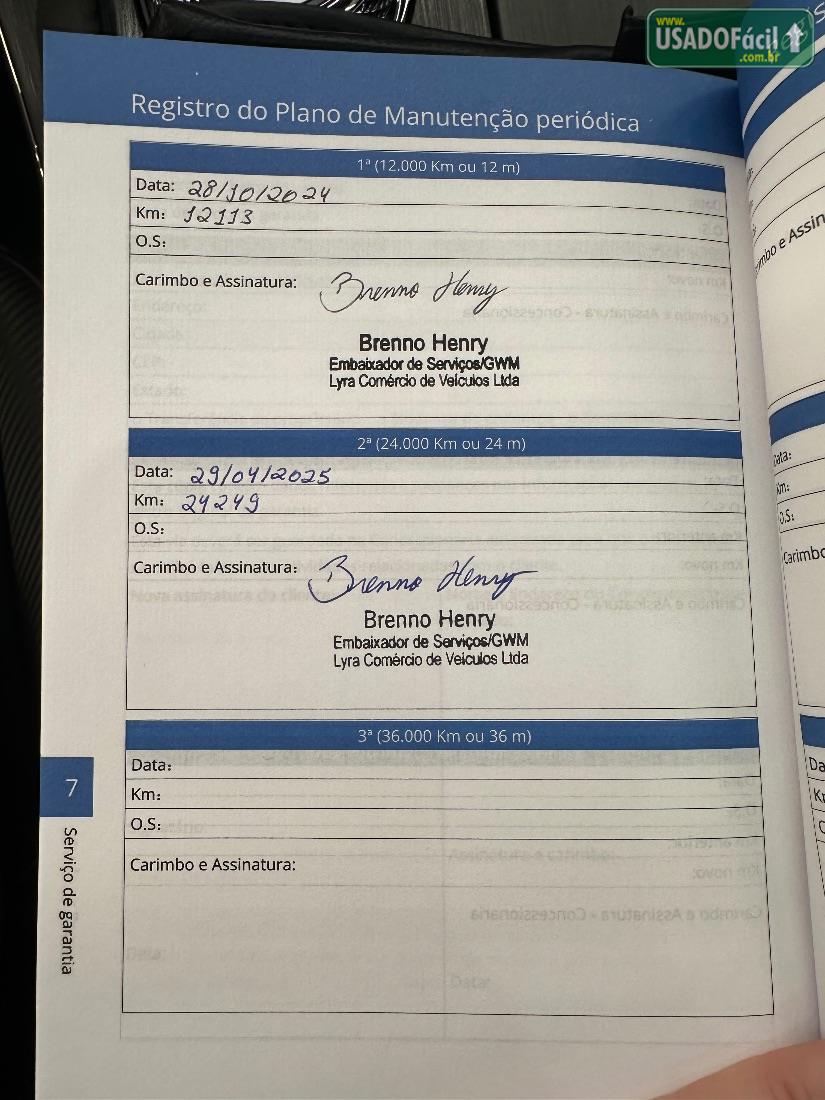 www.
USADOFácil
.com.br
Registro do Plano de Manutenção periódica
1ª (12.000 Km ou 12 m)
Data: 28/10/2024
Km: 12113
O.S:
Carimbo e Assinatura: Brenno Henry
Brenno Henry
Embaixador de Serviços/GWM
Lyra Comércio de Veículos Ltda
2ª (24.000 Km ou 24 m)
Data: 29/04/2025
Km: 24249
O.S:
Carimbo e Assinatura: Brenno Henry
Brenno Henry
Embaixador de Serviços/GWM
Lyra Comércio de Veículos Ltda
3ª (36.000 Km ou 36 m)
Data:
Km:
O.S:
Carimbo e Assinatura:
7
Serviço de garantia
O.S:
Carimbo